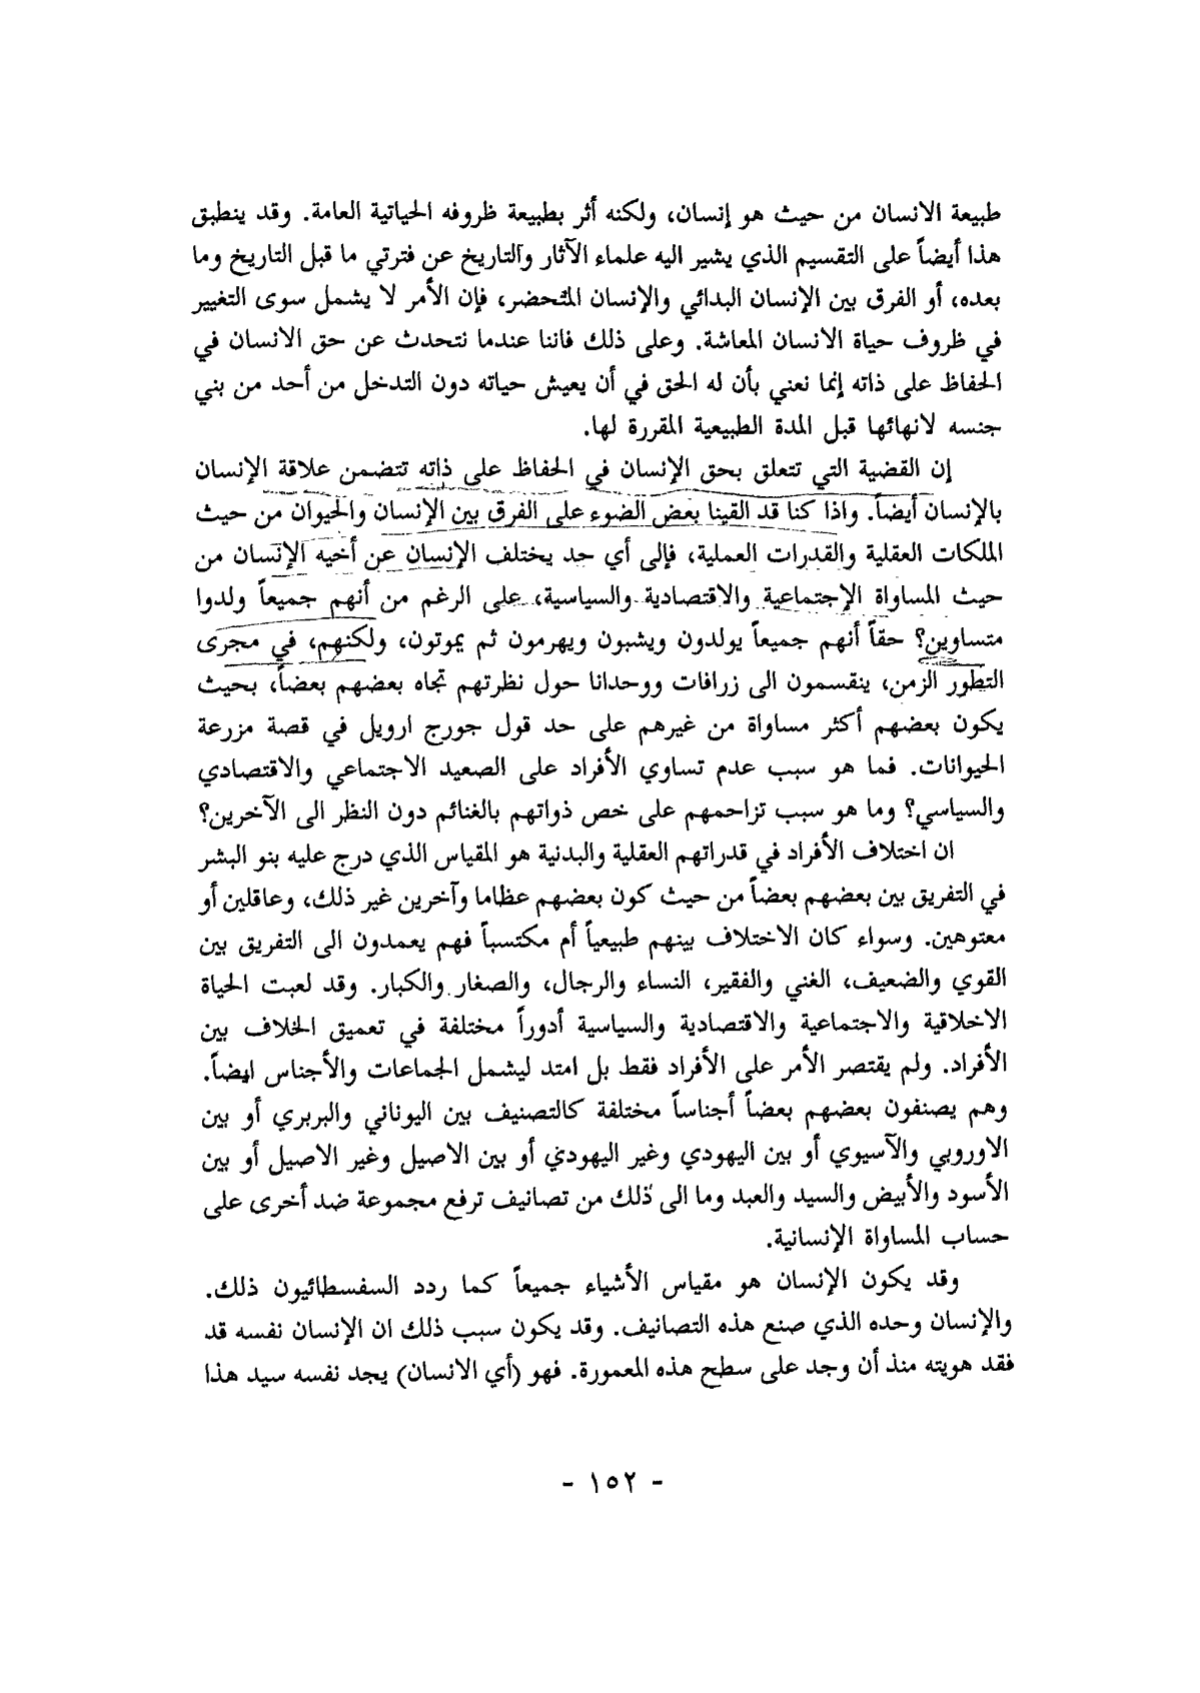 طبيعة الانسان من حيث هو إنسان، ولكنه أثر بطبيعة ظروفه الحياتية العامة. وقد ينطبق
هذا أيضاً على التقسيم الذي يشير اليه علماء الآثار والتاريخ عن فترتي ما قبل التاريخ وما
بعده، أو الفرق بين الإنسان البدائي والإنسان المتحضر، فإن الأمر لا يشمل سوى التغيير
في ظروف حياة الانسان المعاشة. وعلى ذلك فاننا عندما نتحدث عن حق الانسان في
الحفاظ على ذاته إنما نعني بأن له الحق في أن يعيش حياته دون التدخل من أحد من بني
جنسه لانهائها قبل المدة الطبيعية المقررة لها.
إن القضية التي تتعلق بحق الإنسان في الحفاظ على ذاته تتضمن علاقة الإنسان
بالإنسان أيضاً. واذا كنا قد القينا بعض الضوء على الفرق بين الإنسان والحيوان من حيث
الملكات العقلية والقدرات العملية، فإلى أي حد يختلف الإنسان عن أخيه الإنسان من
حيث المساواة الإجتماعية والاقتصادية والسياسية، على الرغم من أنهم جميعاً ولدوا
متساوين؟ حقاً أنهم جميعاً يولدون ويشبون ويهرمون ثم يموتون، ولكنهم، في مجرى
التطور الزمن، ينقسمون الى زرافات ووحدانا حول نظرتهم تجاه بعضهم بعضاً، بحيث
يكون بعضهم أكثر مساواة من غيرهم على حد قول جورج ارويل في قصة مزرعة
الحيوانات. فما هو سبب عدم تساوي الأفراد على الصعيد الاجتماعي والاقتصادي
والسياسي؟ وما هو سبب تزاحمهم على خص ذواتهم بالغنائم دون النظر الى الآخرين؟
ان اختلاف الأفراد في قدراتهم العقلية والبدنية هو المقياس الذي درج عليه بنو البشر
في التفريق بين بعضهم بعضاً من حيث كون بعضهم عظاما وآخرين غير ذلك، وعاقلين أو
معتوهين. وسواء كان الاختلاف بينهم طبيعياً أم مكتسباً فهم يعمدون الى التفريق بين
القوي والضعيف، الغني والفقير، النساء والرجال، والصغار والكبار. وقد لعبت الحياة
الاخلاقية والاجتماعية والاقتصادية والسياسية أدوراً مختلفة في تعميق الخلاف بين
الأفراد. ولم يقتصر الأمر على الأفراد فقط بل امتد ليشمل الجماعات والأجناس ايضاً.
وهم يصنفون بعضهم بعضاً أجناساً مختلفة كالتصنيف بين اليوناني والبربري أو بين
الاوروبي والآسيوي أو بين اليهودي وغير اليهودي أو بين الاصيل وغير الاصيل أو بين
الأسود والأبيض والسيد والعبد وما الى ذلك من تصانيف ترفع مجموعة ضد أخرى على
حساب المساواة الإنسانية.
وقد يكون الإنسان هو مقياس الأشياء جميعاً كما ردد السفسطائيون ذلك.
والإنسان وحده الذي صنع هذه التصانيف. وقد يكون سبب ذلك ان الإنسان نفسه قد
فقد هويته منذ أن وجد على سطح هذه المعمورة. فهو (أي الانسان) يجد نفسه سيد هذا
- ١٥٢ -